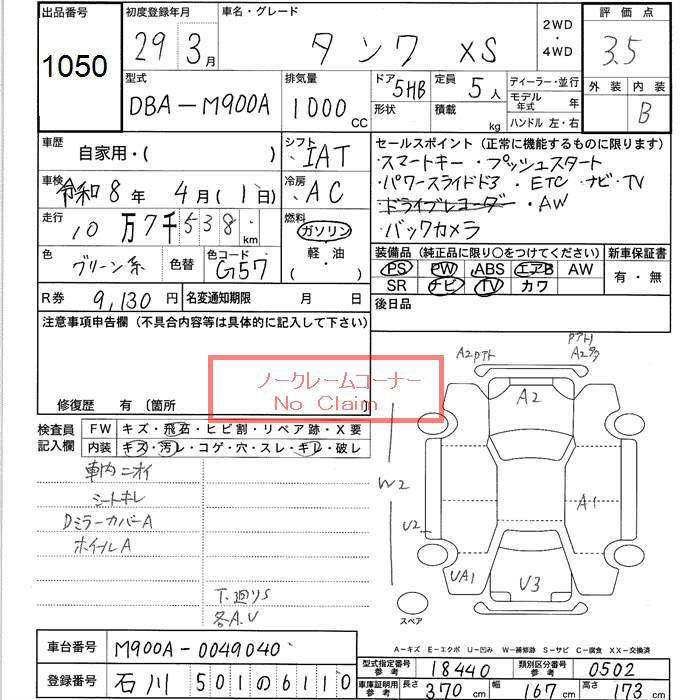 出品番号
1050
初度登録年月
29 3月
車名・グレード
タンク XS
2WD
・
4WD
評価点
3.5
外装 内装
B
型式
DBA-M900A
排気量
1000 CC
ドア 5HB
形状
定員 5人
積載 kg
ディーラー・並行
モデル年式 年
ハンドル 左・右
車歴
自家用・( )
シフト
IAT
車検
令和8年 4月(1日)
冷房
AC
走行
10万7千538km
燃料
ガソリン
軽・油
( )
色
グリーン系
色替
色コード
G57
R券 9,130円
名変通知期限 月 日
セールスポイント(正常に機能するものに限ります)
・スマートキー ・プッシュスタート
・パワースライドドア ・ETC ・ナビ・TV
・ドライブレコーダー ・AW
・バックカメラ
装備品(純正品に限り○をつけてください)
PS PW ABS エアB AW
SR ナビ TV カワ
新車保証書
有・無
後日品
注意事項申告欄(不具合内容等は具体的に記入して下さい)
ノークレームコーナー
No Claim
修復歴 有(箇所
検査員記入欄
FW キズ・飛石・ヒビ割・リペア跡・X要
内装 キズ・汚レ・コゲ・穴・スレ・キレ・破レ
車内ニオイ
シートキレ
DミラーカバーA
ホイルA
下廻りS
各A.U
A2
W2
A1
U2
UA1
U3
スペア
A-キズ E-エクボ U-凹み W-補修跡 S-サビ C-腐食 XX-交換済
車台番号 M900A-0049040
登録番号 石川 501の6110
型式指定番号参考 18440
類別区分番号参考 0502
車庫証明用参考 長さ 370cm 幅 167cm 高さ 173cm